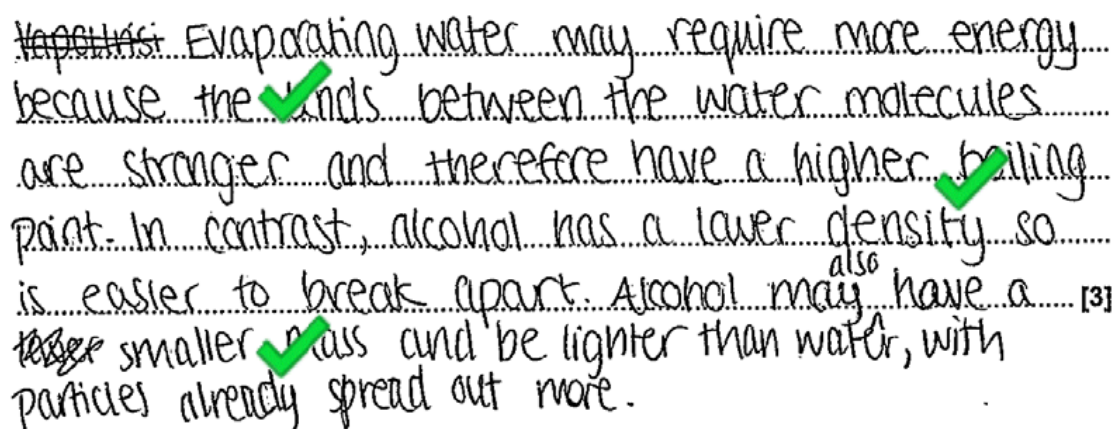 Evaporating water may require more energy
because the bonds between the water molecules
are stronger and therefore have a higher boiling
point. In contrast, alcohol has a lower density so
is easier to break apart. Alcohol may also have a [3]
smaller mass and be lighter than water, with
particles already spread out more.